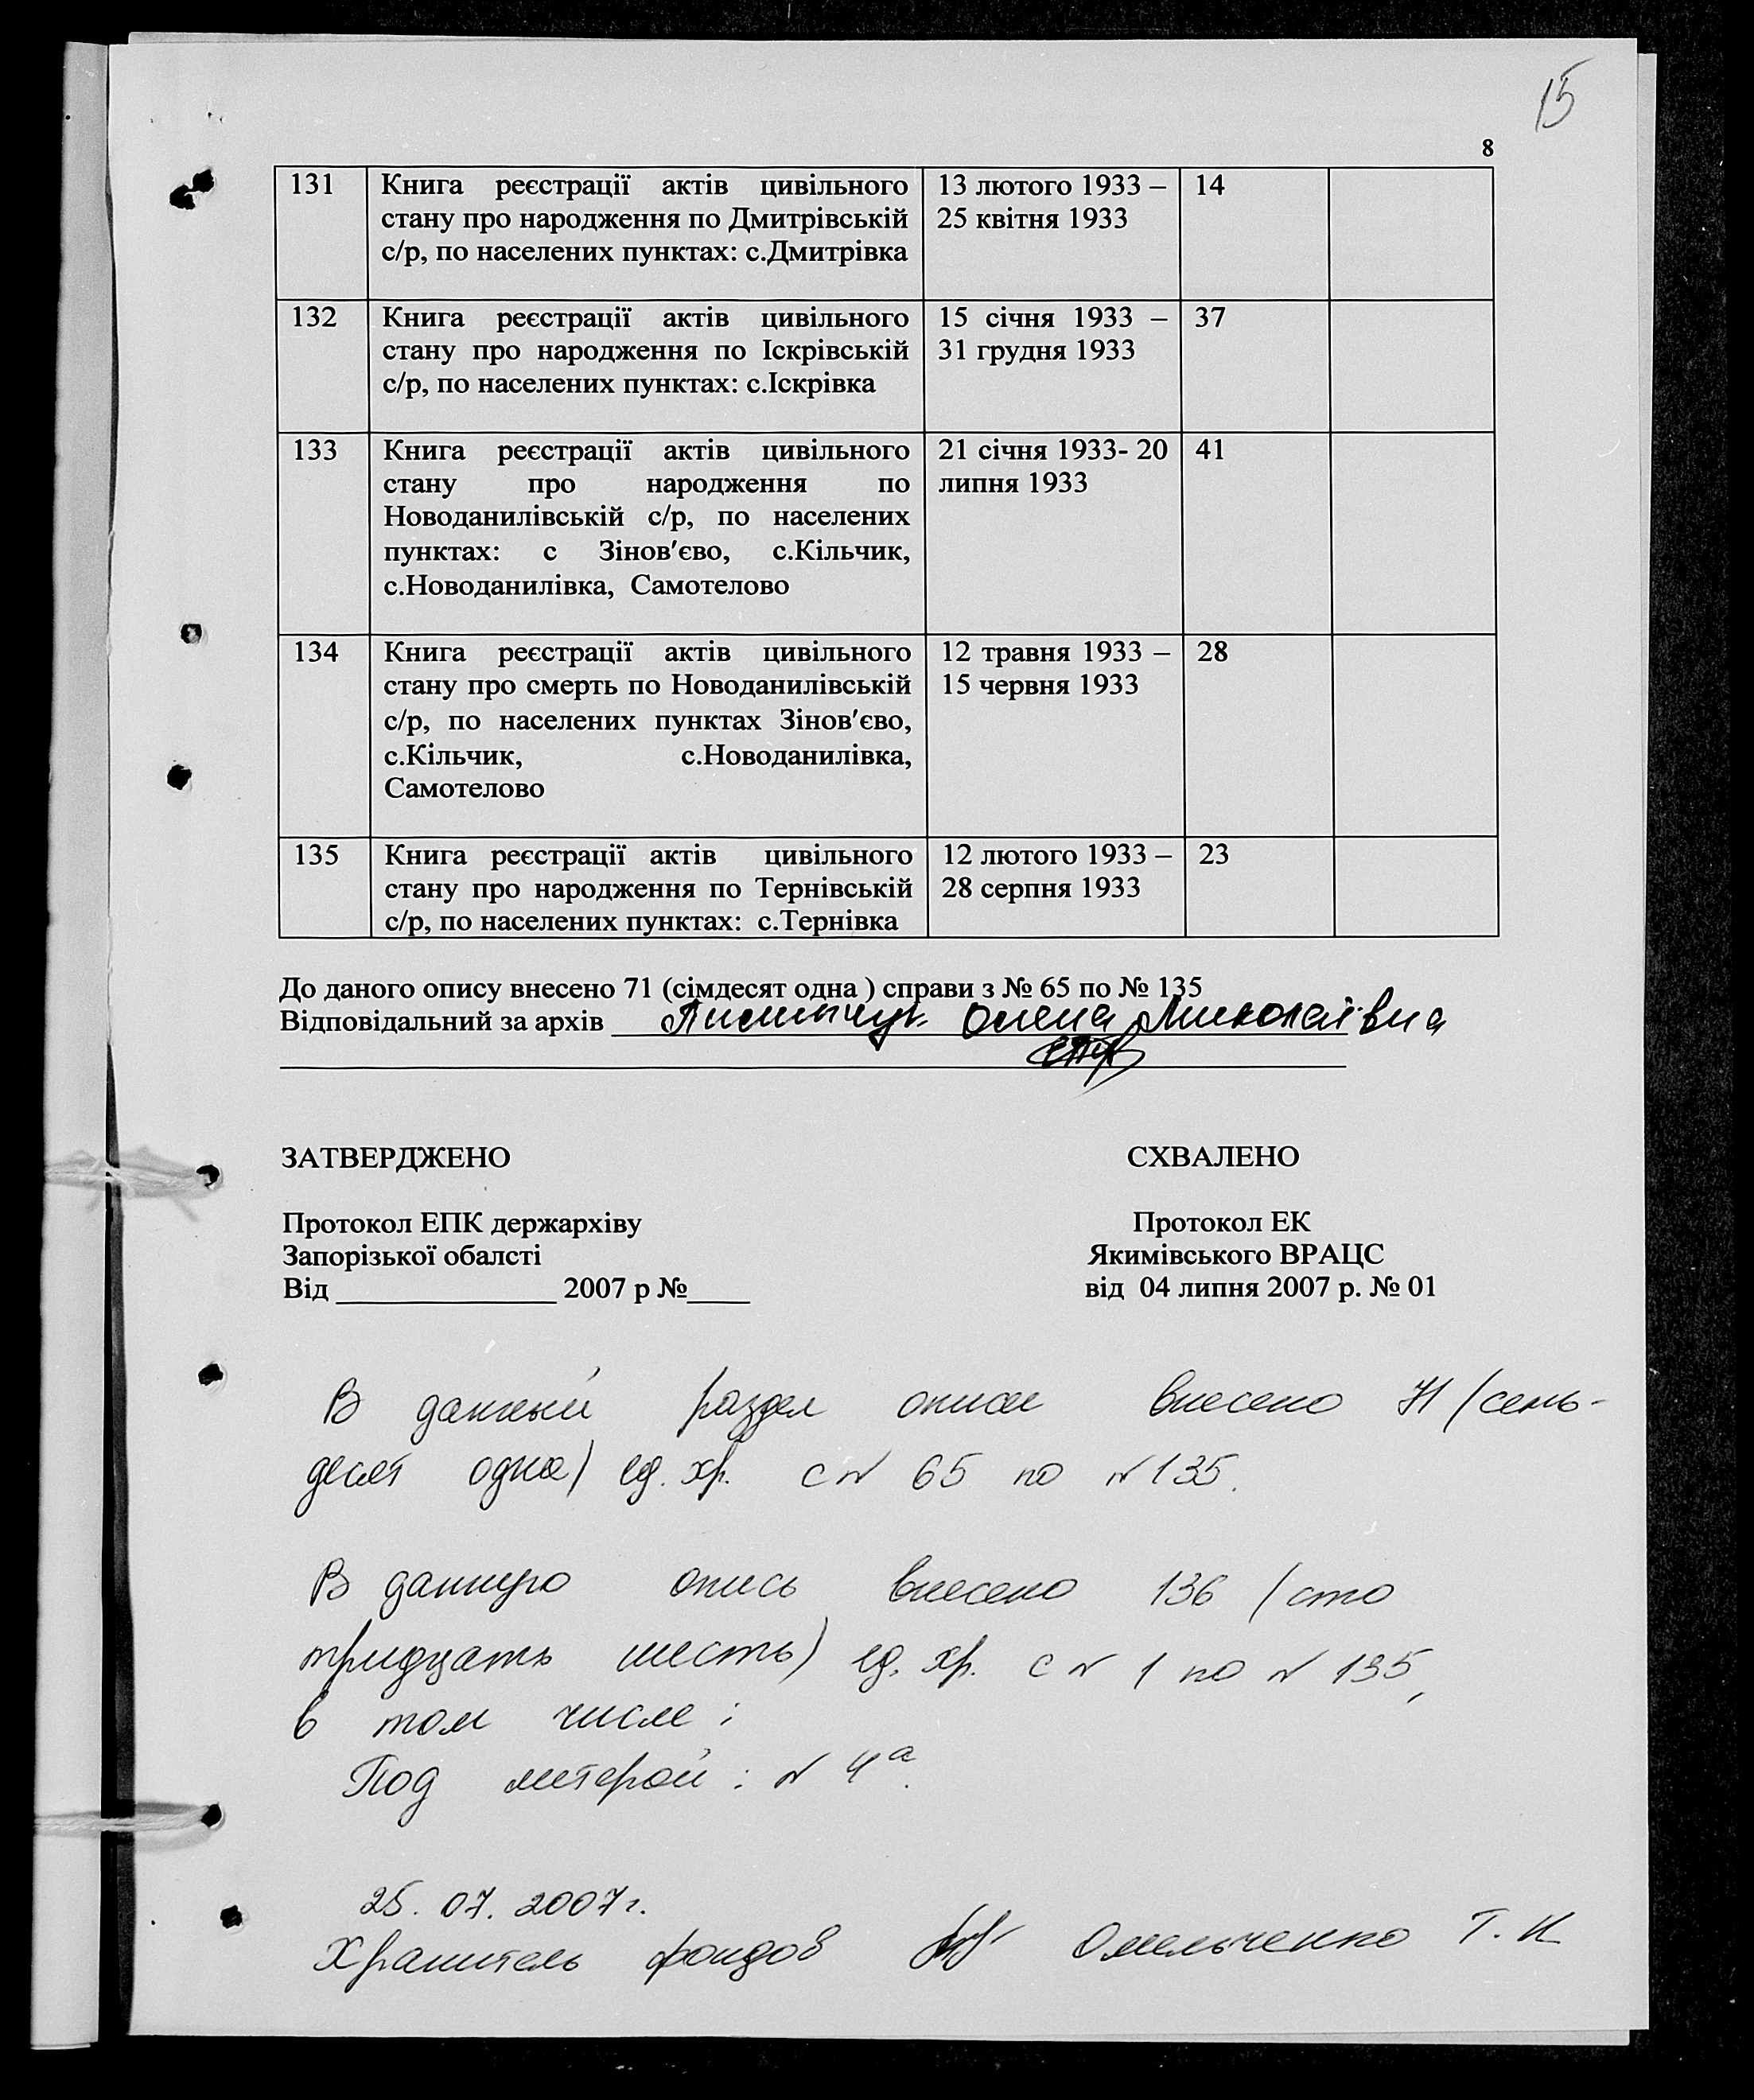 15
8
131 Книга реєстрації актів цивільного 13 лютого 1933 – 14
стану про народження по Дмитрівській 25 квітня 1933
с/р, по населених пунктах: с.Дмитрівка
132 Книга реєстрації актів цивільного 15 січня 1933 – 37
стану про народження по Іскрівській 31 грудня 1933
с/р, по населених пунктах: с.Іскрівка
133 Книга реєстрації актів цивільного 21 січня 1933- 20 41
стану про народження по липня 1933
Новоданилівській с/р, по населених
пунктах: с Зінов'єво, с.Кільчик,
с.Новоданилівка, Самотелово
134 Книга реєстрації актів цивільного 12 травня 1933 – 28
стану про смерть по Новоданилівській 15 червня 1933
с/р, по населених пунктах Зінов'єво,
с.Кільчик, с.Новоданилівка,
Самотелово
135 Книга реєстрації актів цивільного 12 лютого 1933 – 23
стану про народження по Тернівській 28 серпня 1933
с/р, по населених пунктах: с.Тернівка
До даного опису внесено 71 (сімдесят одна ) справи з № 65 по № 135
Відповідальний за архів Олена Миколаївна
ЗАТВЕРДЖЕНО СХВАЛЕНО
Протокол ЕПК держархіву Протокол ЕК
Запорізької обалсті Якимівського ВРАЦС
Від ______________ 2007 р №____ від 04 липня 2007 р. № 01
В данный раздел описи внесено 71 (семь-
десят одна) ед. хр. с № 65 по № 135.
В данную опись внесено 136 (сто
тридцать шесть) ед. хр. с № 1 по № 135,
в том числе:
Под литерой: № 4а.
25. 07. 2007г.
Хранитель фондов Омельченко Т. К